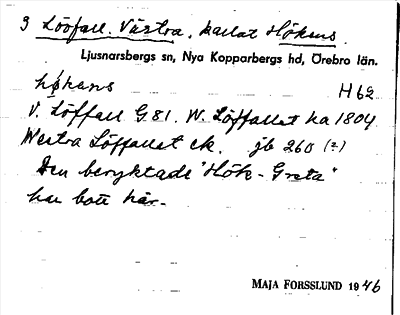 3 Lööfall. Västra, kallat Hökens.
Ljusnarsbergs sn, Nya Kopparbergs hd, Örebro län.
hökens H 62
V. Löffall G 81. W. Löffallet ha 1804
Westra Löffallet ek. jb 260 (2)
Den beryktade "Hök-Greta"
har bott här.
MAJA FORSSLUND 1946